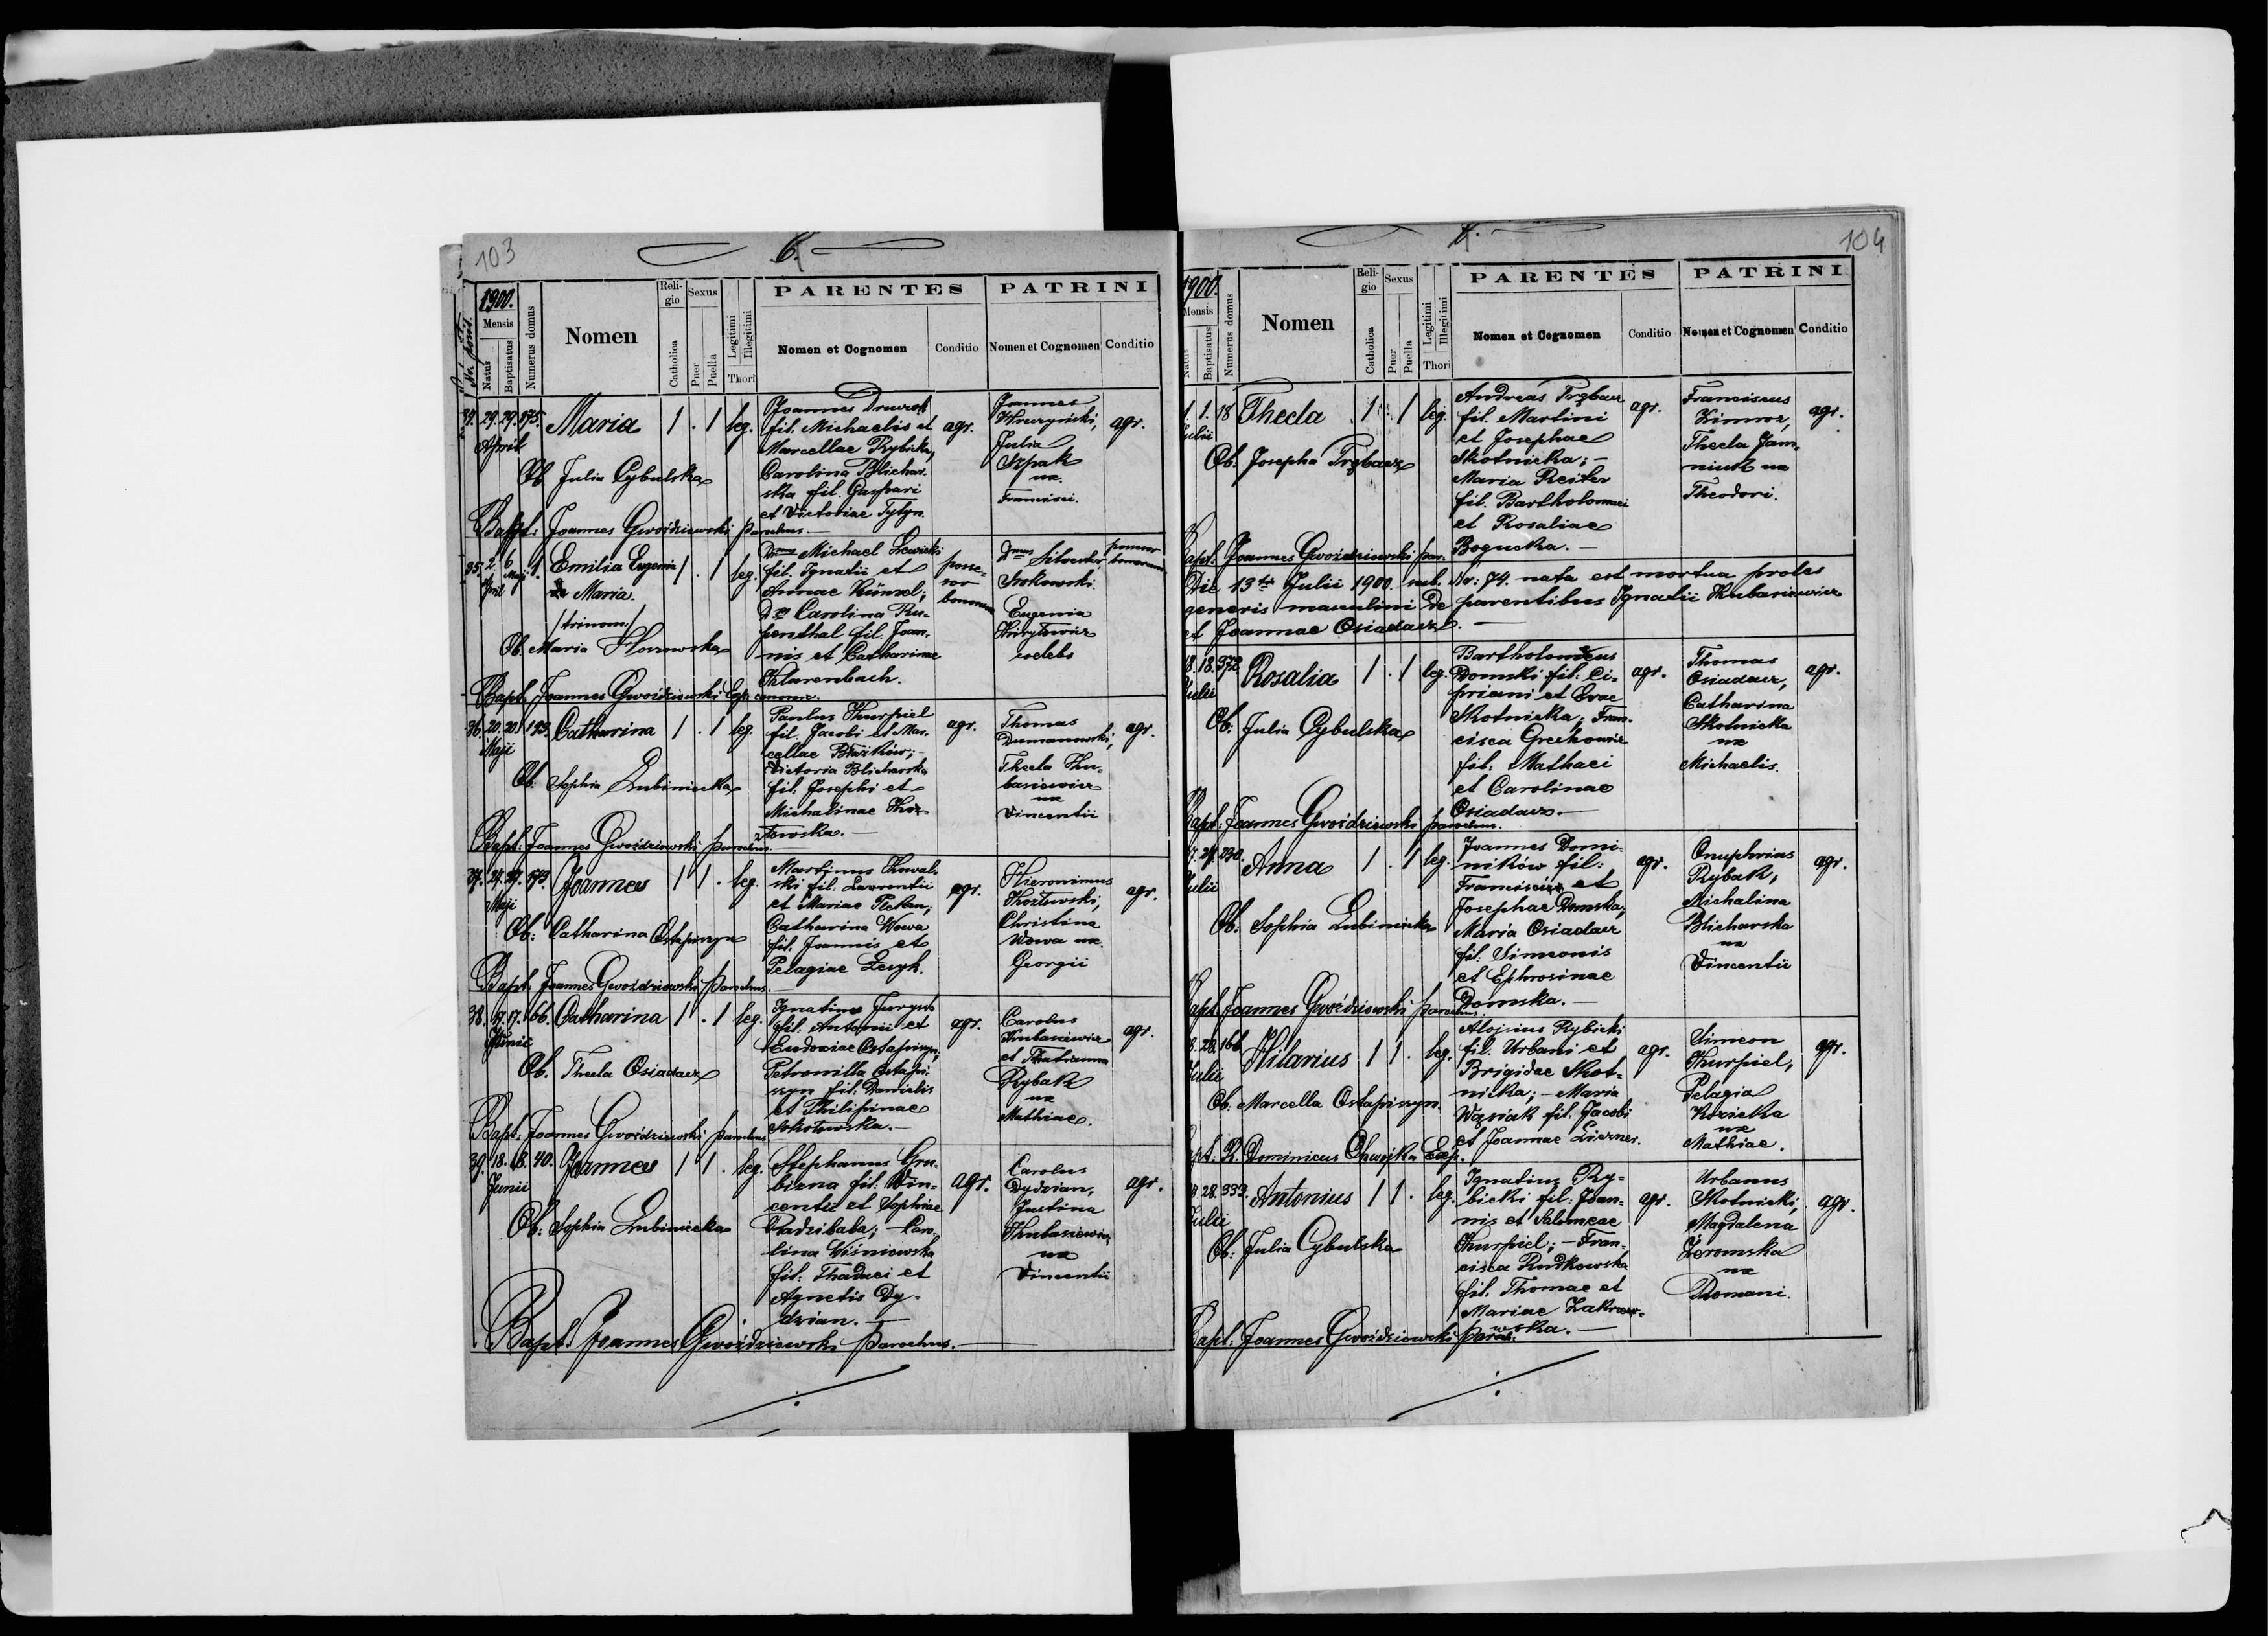 103
6.
1900.
Mensis
Natus
Baptisatus
Numerus domus
Nomen
Religio
Catholica
Sexus
Puer
Puella
Legitimi
Illegitimi
Thori
PARENTES
Nomen et Cognomen
Conditio
PATRINI
Nomen et Cognomen
Conditio
29. 29. 175. Maria 1 . 1 leg.
April
Joannes
fil. Michaelis et
Marcellae Rybicka,
Carolina Blichar-
ska fil. Gaspari
et Victoriae Tytyn.
agr.
Joannes
Julia
Szpak
ux.
Francisci.
agr.
Ob. Julia Cybulska
Bapt: Joannes Gwoździowski parochus.
35. 2. 6 1. Emilia Eugenia 1 . 1 leg.
April Maji
Maria.
/trinom/
Dnus Michael Lewicki
fil. Ignatii et
Annae Künzel;
Dna Carolina Ru-
penthal fil. Joan-
nis et Catharinae
Klarenbach.
posse-
sor
bonorum
Dnus Silvester
Srokowski.
Eugenia
coelebs
Ob. Maria
Bapt. Joannes Gwoździowski
36. 20. 20. 193. Catharina 1 . 1 leg.
Maji
Paulus Kurpiel
fil. Jacobi et Mar-
cellae Błażków;
Victoria Blicharska
fil. Josephi et
Michalinae Koz-
łowska. —
agr.
Thomas
Dumanowski,
Thecla Ku-
basiewicz
ux
Vincentii
agr.
Ob: Sophia Lubiniecka
Bapt: Joannes Gwoździowski parochus.
37. 27. 27. 573. Joannes 1 1 . leg.
Maji
Martinus Kowal-
ski fil. Laurentii
et Mariae
Catharina Wowa
fil. Joannis et
Pelagiae
agr.
Hieronimus
Kozłowski,
Christina
Wowa ux.
Georgii
agr.
Ob: Catharina Ostapiszyn
Bapt. Joannes Gwoździowski Parochus.
38. 17. 17. 66. Catharina 1 . 1 leg.
Junii
Ignatius
fil. Antonii et
Eudoxiae Ostapiszyn,
Petronilla Ostapi-
szyn fil. Danielis
et Philipinae
Sokołowska. —
agr.
Carolus
Kubasiewicz
et
Rybak
ux
Mathiae.
agr.
Ob. Thecla Osiadacz
Bapt. Joannes Gwoździowski parochus.
39. 18. 18. 40. Joannes 1 1 . leg.
Junii
Stephanus Gru-
bizna fil. Vin-
centii et Sophiae
Radzikaba; — Caro-
lina Wiśniewska
fil: Thadaei et
Agnetis Dy-
dzian. —
agr.
Carolus
Dydzian,
Justina
Kubasiewicz
ux
Vincentii
agr.
Ob: Sophia Lubiniecka
Bapt. Joannes Gwoździowski Parochus. —
104
7.
1900.
Mensis
Natus
Baptisatus
Numerus domus
Nomen
Religio
Catholica
Sexus
Puer
Puella
Legitimi
Illegitimi
Thori
PARENTES
Nomen et Cognomen
Conditio
PATRINI
Nomen et Cognomen
Conditio
1. 1. 18 Thecla 1 . 1 leg.
Julii
Andreas Trębacz
fil. Martini
et Josephae
Skotnicka; —
Maria Reiter
fil. Bartholomaei
et Rosaliae
Bogucka. —
agr.
Franciscus
Thecla Jam-
niuk ux
Theodori.
agr.
Ob. Josepha Trębacz
Bapt. Joannes Gwoździowski par.
Die 13tia Julii 1900. sub. Nr: 74. nata est mortua proles
generis masculini De parentibus Ignatii Kubasiewicz
et Joannae Osiadacz. —
18. 18. 372 Rosalia 1 . 1 leg.
Julii
Bartholomeus
Domski fil: Ci-
priani et Evae
Skotnicka; Fran-
cisca Grechowicz
fil: Mathaei
et Carolinae
Osiadacz. —
agr.
Thomas
Osiadacz,
Catharina
Skotnicka
ux
Michaelis.
agr.
Ob: Julia Cybulska
Bapt: Joannes Gwoździowski parochus.
27. 230. Anna 1 . 1 leg.
Julii
Joannes Domi-
ników fil:
et
Josephae Domska,
Maria Osiadacz
fil. Simeonis
et Ephrosinae
Domska. —
agr.
Onuphrius
Rybak,
Michalina
Blicharska
ux
Vincentii
agr.
Ob. Sophia Lubiniecka
Bapt. Joannes Gwoździowski parochus.
28. 166 Hilarius 1 1 . leg.
Julii
Aloisius Rybicki
fil. Urbani et
Brigidae Skot-
nicka; — Maria
Wąsiak fil. Jacobi
et Joannae
agr.
Simeon
Kurpiel,
Pelagia
Kozicka
ux
Mathiae.
agr.
Ob. Marcella Ostapiszyn.
Bapt: R. Dominicus
28. 333. Antonius 1 1 . leg.
Julii
Ignatius Ry-
bicki fil. Joan-
nis et Salomeae
Kurpiel; — Fran-
cisca Rudkowska
fil. Thomae et
Mariae Zakrzew-
ska. —
agr.
Urbanus
Skotnicki,
Magdalena
Żeromska
ux
Romani.
agr.
Ob: Julia Cybulska
Bapt: Joannes Gwoździowski paroch.